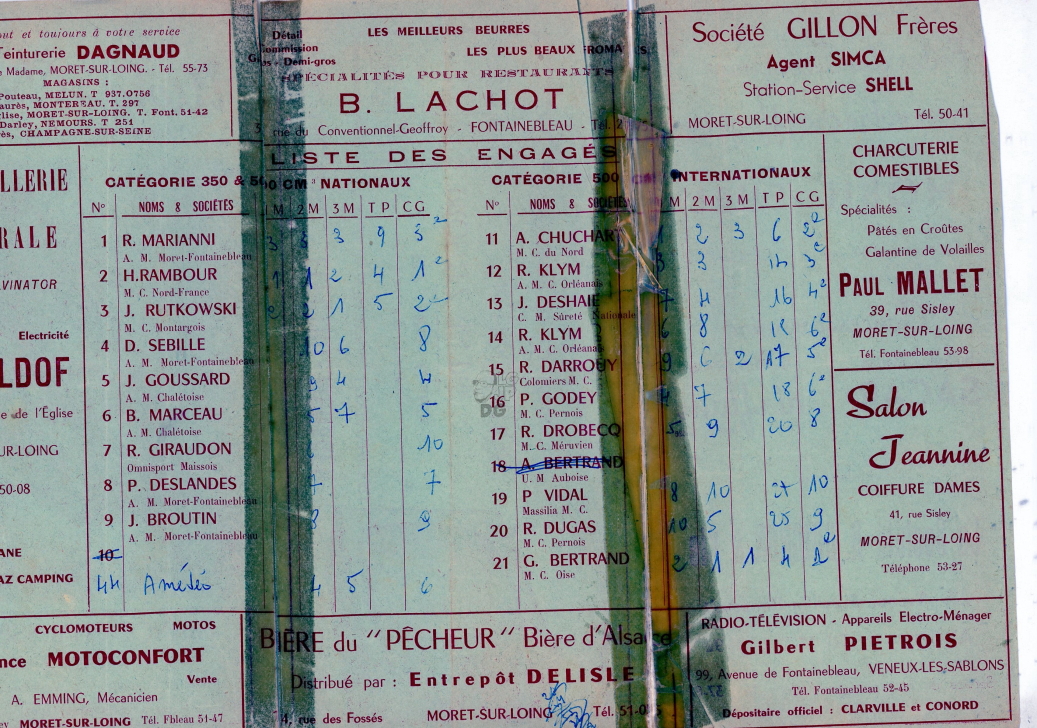 out et toujours à votre service
einturerie DAGNAUD
e Madame, MORET-SUR-LOING. - Tél. 55-73
MAGASINS :
Pouteau, MELUN. T 937.0756
aurès, MONTEREAU. T. 297
glise, MORET-SUR-LOING. T. Font. 51-42
Darley, NEMOURS. T 251
ès, CHAMPAGNE-SUR-SEINE
Détail
LES MEILLEURS BEURRES
Demi-gros
LES PLUS BEAUX FROMA S
SPÉCIALITÉS POUR RESTAURANTS
B. LACHOT
rue du Conventionnel-Geoffroy - FONTAINEBLEAU - Tél. 2
Société GILLON Frères
Agent SIMCA
Station-Service SHELL
MORET-SUR-LOING Tél. 50-41
LISTE DES ENGAGÉS
LLERIE
RALE
VINATOR
Electricité
LDOF
e de l'Église
UR-LOING
50-08
ANE
AZ CAMPING
CATÉGORIE 350 & 500 CM³ NATIONAUX
No NOMS & SOCIÉTÉS 1 M 2 M 3 M T P C G
1 R. MARIANNI 3 3 9 3
A. M. Moret-Fontainebleau
2 H. RAMBOUR 1 1 2 4 1
M. C. Nord-France
3 J. RUTKOWSKI 2 2 1 5 2
M. C. Montargois
4 D. SEBILLE 10 6 8
A. M. Moret-Fontainebleau
5 J. GOUSSARD 9 4 4
A. M. Chalétoise
6 B. MARCEAU 5 7 5
A. M. Chalétoise
7 R. GIRAUDON 10
Omnisport Maissois
8 P. DESLANDES 7 7
A. M. Moret-Fontainebleau
9 J. BROUTIN 8 9
A. M. Moret-Fontainebleau
10
44 Amédéo 4 5 6
CATÉGORIE 500 CM INTERNATIONAUX
No NOMS & SOCIÉTÉS M 2 M 3 M T P C G
11 A. CHUCHART 2 3 6 2
M. C. du Nord
12 R. KLYM 3 3 3
A. M. C. Orléanais
13 J. DESHAIE 7 4 16 4
C. M. Sûreté Nationale
14 R. KLYM 6 8 6
A. M. C. Orléanais
15 R. DARROUY 9 6 2 17 5
Colomiers M. C.
16 P. GODEY 7 18 6
M. C. Pernois
17 R. DROBECQ 5 9 20 8
M. C. Méruvien
18 A. BERTRAND
U. M Auboise
19 P VIDAL 8 10 10
Massilia M. C.
20 R. DUGAS 10 5 25 9
M. C. Pernois
21 G. BERTRAND 2 1 1 4 1
M. C. Oise
DG
CHARCUTERIE
COMESTIBLES
Spécialités :
Pâtés en Croûtes
Galantine de Volailles
PAUL MALLET
39, rue Sisley
MORET-SUR-LOING
Tél. Fontainebleau 53-98
Salon
Jeannine
COIFFURE DAMES
41, rue Sisley
MORET-SUR-LOING
Téléphone 53-27
CYCLOMOTEURS MOTOS
nce MOTOCONFORT
Vente
A. EMMING, Mécanicien
ey MORET-SUR-LOING Tél. Fbleau 51-47
BIÈRE du "PÊCHEUR" Bière d'Alsace
Distribué par : Entrepôt DELISLE
4, rue des Fossés MORET-SUR-LOING Tél. 51-0
RADIO-TÉLÉVISION - Appareils Electro-Ménager
Gilbert PIETROIS
99, Avenue de Fontainebleau, VENEUX-LES-SABLONS
Tél. Fontainebleau 52-45
Dépositaire officiel : CLARVILLE et CONORD